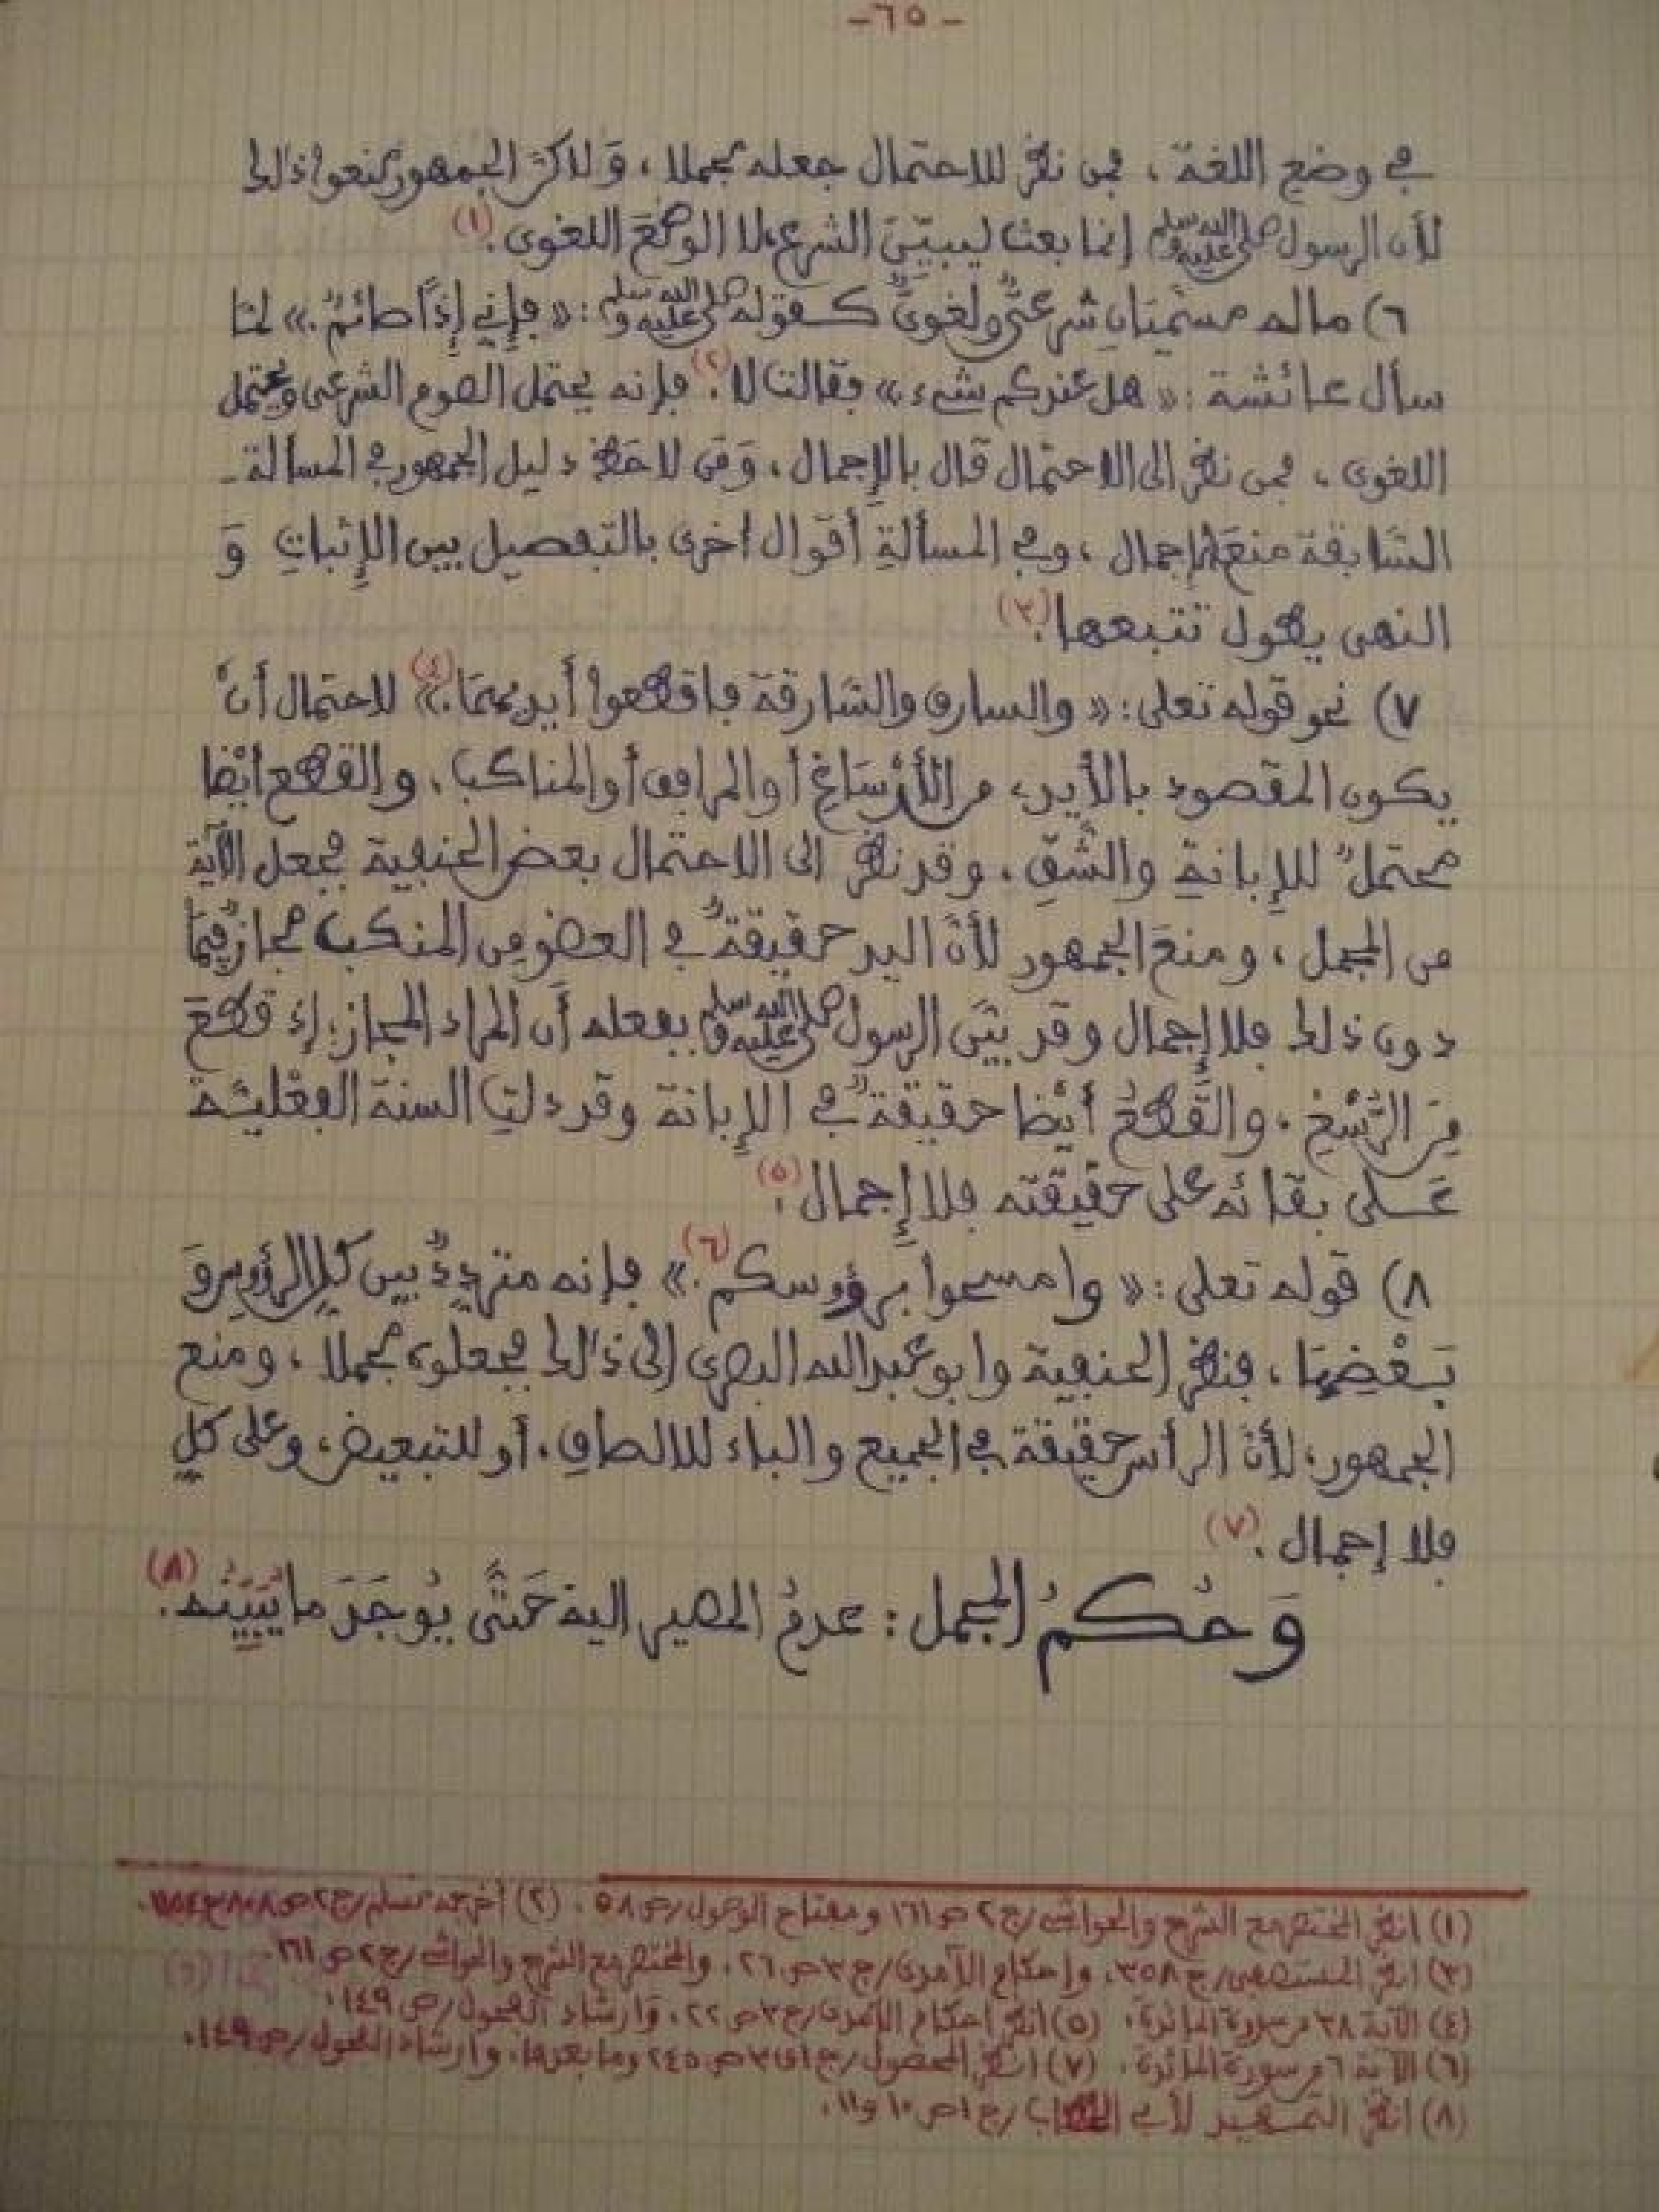 -٦٥-
في وضع اللغة، فمن نظر للاحتمال جعله مجملا، وَلاكنَّ الجمهور منعوا ذلك
لأن الرسول صلى الله عليه وسلم إنما بعث ليبيّنَ الشرع لا الوضعَ اللغوي.(١)
٦) ماله مسمَّيَانِ شرعيٌّ ولغويٌّ كـقوله صلى الله عليه وسلم: «فإني إذًا صائمٌ.» لمَّا
سأل عائشة: «هل عندكم شيء» فقالت لا.(٢) فإنه يحتمل الصوم الشرعي ويحتمل
اللغوي، فمن نظر إلى الاحتمال قال بالإجمال، وَمَن لاحَظ دليل الجمهور في المسألة ـ
السَّابقة منعَ الإجمال، وفي المسألةِ أقوال أخرى بالتفصيل بين الإثباتِ وَ
النهي يطول تتبعها.(٣)
٧) نحو قوله تعلى: «والسارق والسَّارقة فاقطعوا أيديهمَا.»(٤) لاحتمال أنْ
يكون المقصود بالأيدي من الأرْسَاغِ أو المرافق أو المناكب، والقطع أيْضا
محتملٌ للإبانةِ والشَّقِ، وقد نظر الى الاحتمال بعض الحنفية فجعل الآية
من المجمل، ومنعَ الجمهور لأنَّ اليد حقيقةٌ في العضو من المنكب مجازٌ فيمَا
دون ذلك فلا إجمال وقد بيَّن الرسول صلى الله عليه وسلم بفعله أن المراد المجاز؛ إذ قطعَ
مِنَ الرُّسْغِ، والقَطْعُ أيْضا حقيقةٌ في الإبانة وقد دلتِ السنة الفِعْليَّـة
عَـلى بقائه على حقيقته فلا إجمال.(٥)
٨) قوله تعلى: «وامسحوا برؤوسكم.»(٦) فإنه مترددٌ بين كلِ الرؤوسِ وَ
بَعْضِهَا، فنظر الحنفية وابو عبد الله البصري إلى ذلك فجعلوه مجملا، ومنع
الجمهور، لأنَّ الرأس حقيقة في الجميع والباء للالصاق، أو للتبعيض، وعلى كلٍ
فلا إجمال.(٧)
وَحُكمُ المجمل: عدمُ المصير اليه حَتَّى يُوجَدَ ما يُبَيِّنُه.(٨)
(١) انظر المختصر مع الشرح والحواشي/ج٢ ص١٦١ ومفتاح الوصول/ص٥٨. (٢) أخرجه مسلم/ج٢ص٨٠٨ح١١٥٤.
(٣) انظر المستصفى/ج ٣٥٨، وإحكام الآمدي/ج٣ص٢٦، والمختصر مع الشرح والحواشي/ج٢ص١٦١
(٤) الآية ٣٨ من سورة المائدة. (٥) انظر احكام الآمدي/ج٣ص٢٢، وَارشاد الفحول/ص١٤٩.
(٦) الآية ٦ من سورة المائدة. (٧) انظر المحصول/ج١ق٣ص٢٤٥ وما بعدها، وارشاد الفحول/ص١٤٩.
(٨) انظر التمهيد لأبي الخطاب/ج١ص١٠ و١١.